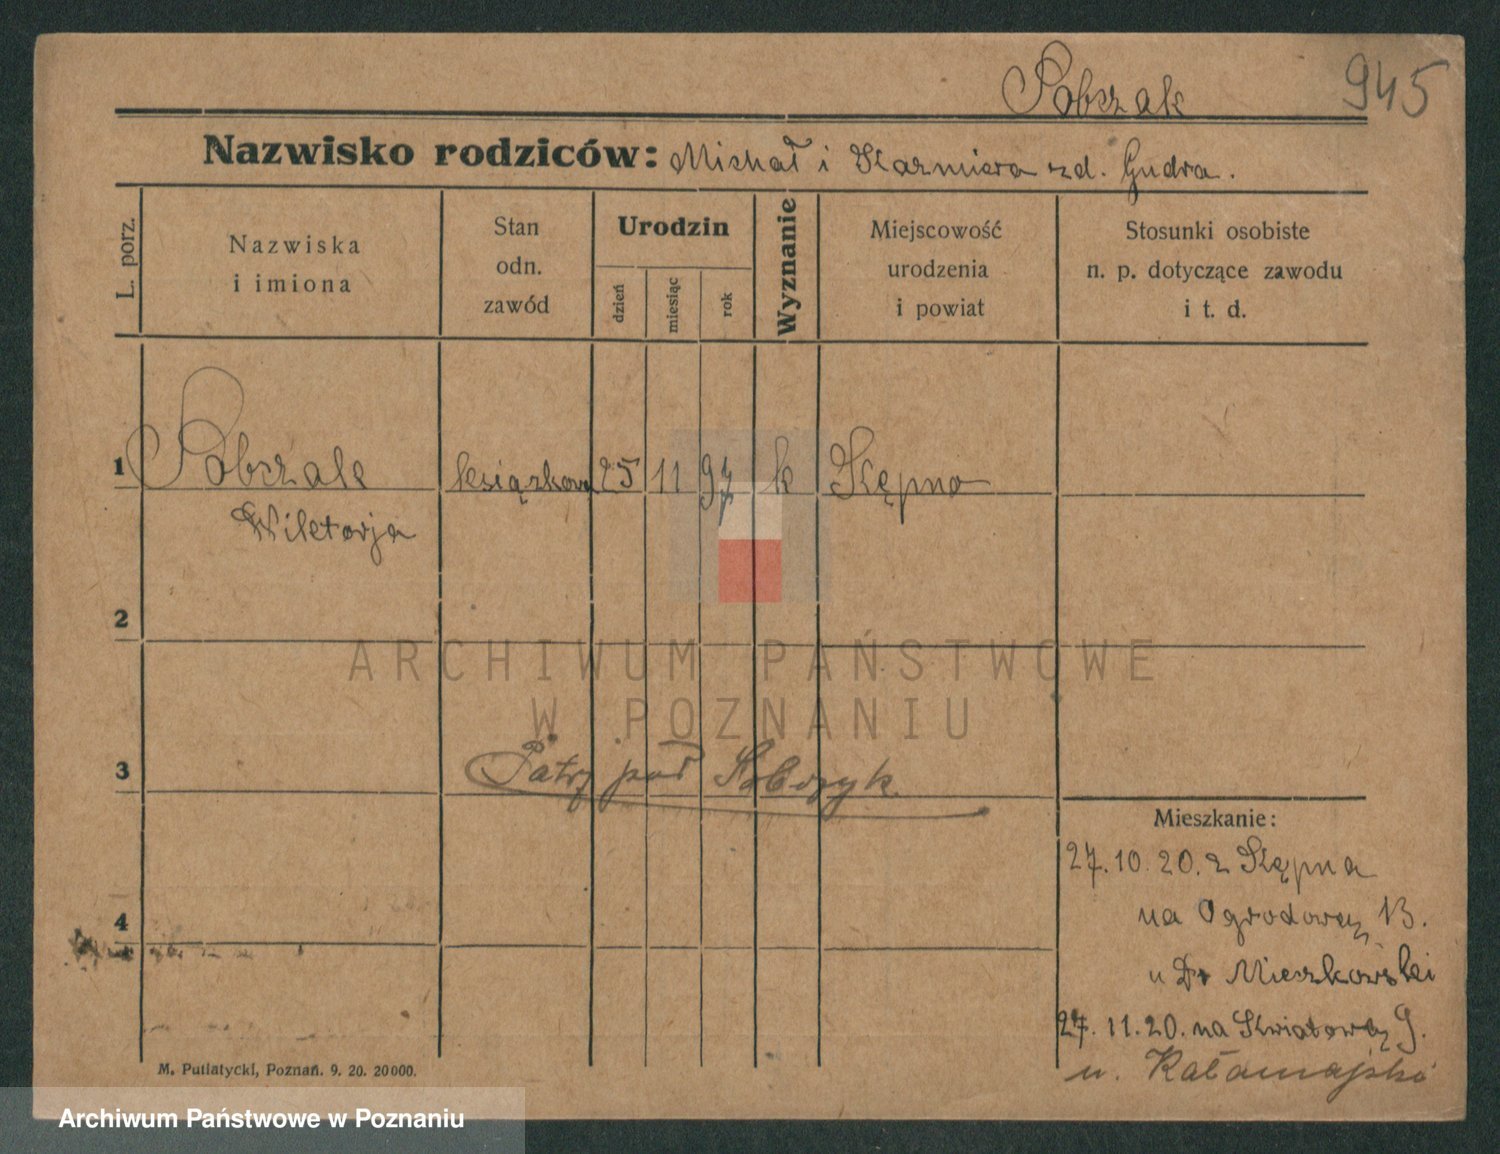 Sobczak 945
Nazwisko rodziców: Michał i Kazmiera zd. Gudra.
L. porz.
Nazwiska
i imiona
Stan
odn.
zawód
Urodzin
dzień
miesiąc
rok
Wyznanie
Miejscowość
urodzenia
i powiat
Stosunki osobiste
n. p. dotyczące zawodu
i t. d.
1 Sobczak książkowa 25 11 97 k Kępno
Wiktorja
2
ARCHIWUM PAŃSTWOWE
W POZNANIU
3 Patrz pod Sobczyk
Mieszkanie:
27.10.20. z Kępna
na Ogrodowey 13.
u Dr Mieczkowski
4
27.11.20. na Kwiatowey 9.
u. Kałamajski
M. Putiatycki, Poznań. 9. 20. 20000.
Archiwum Państwowe w Poznaniu